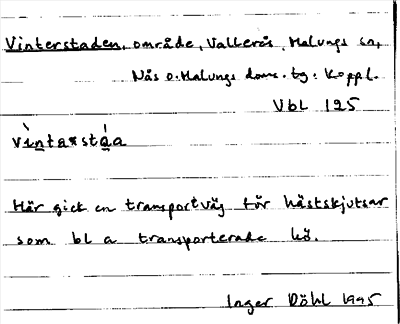 Vinterstaden, område, Vallerås, Malungs sn,
Nås o. Malungs doms. tg. Koppl.
Vbl 125
vìntạ*stá̱a
Här gick en transportväg för hästskjutsar
som bl a transporterade hö.
Inger Döhl 1995